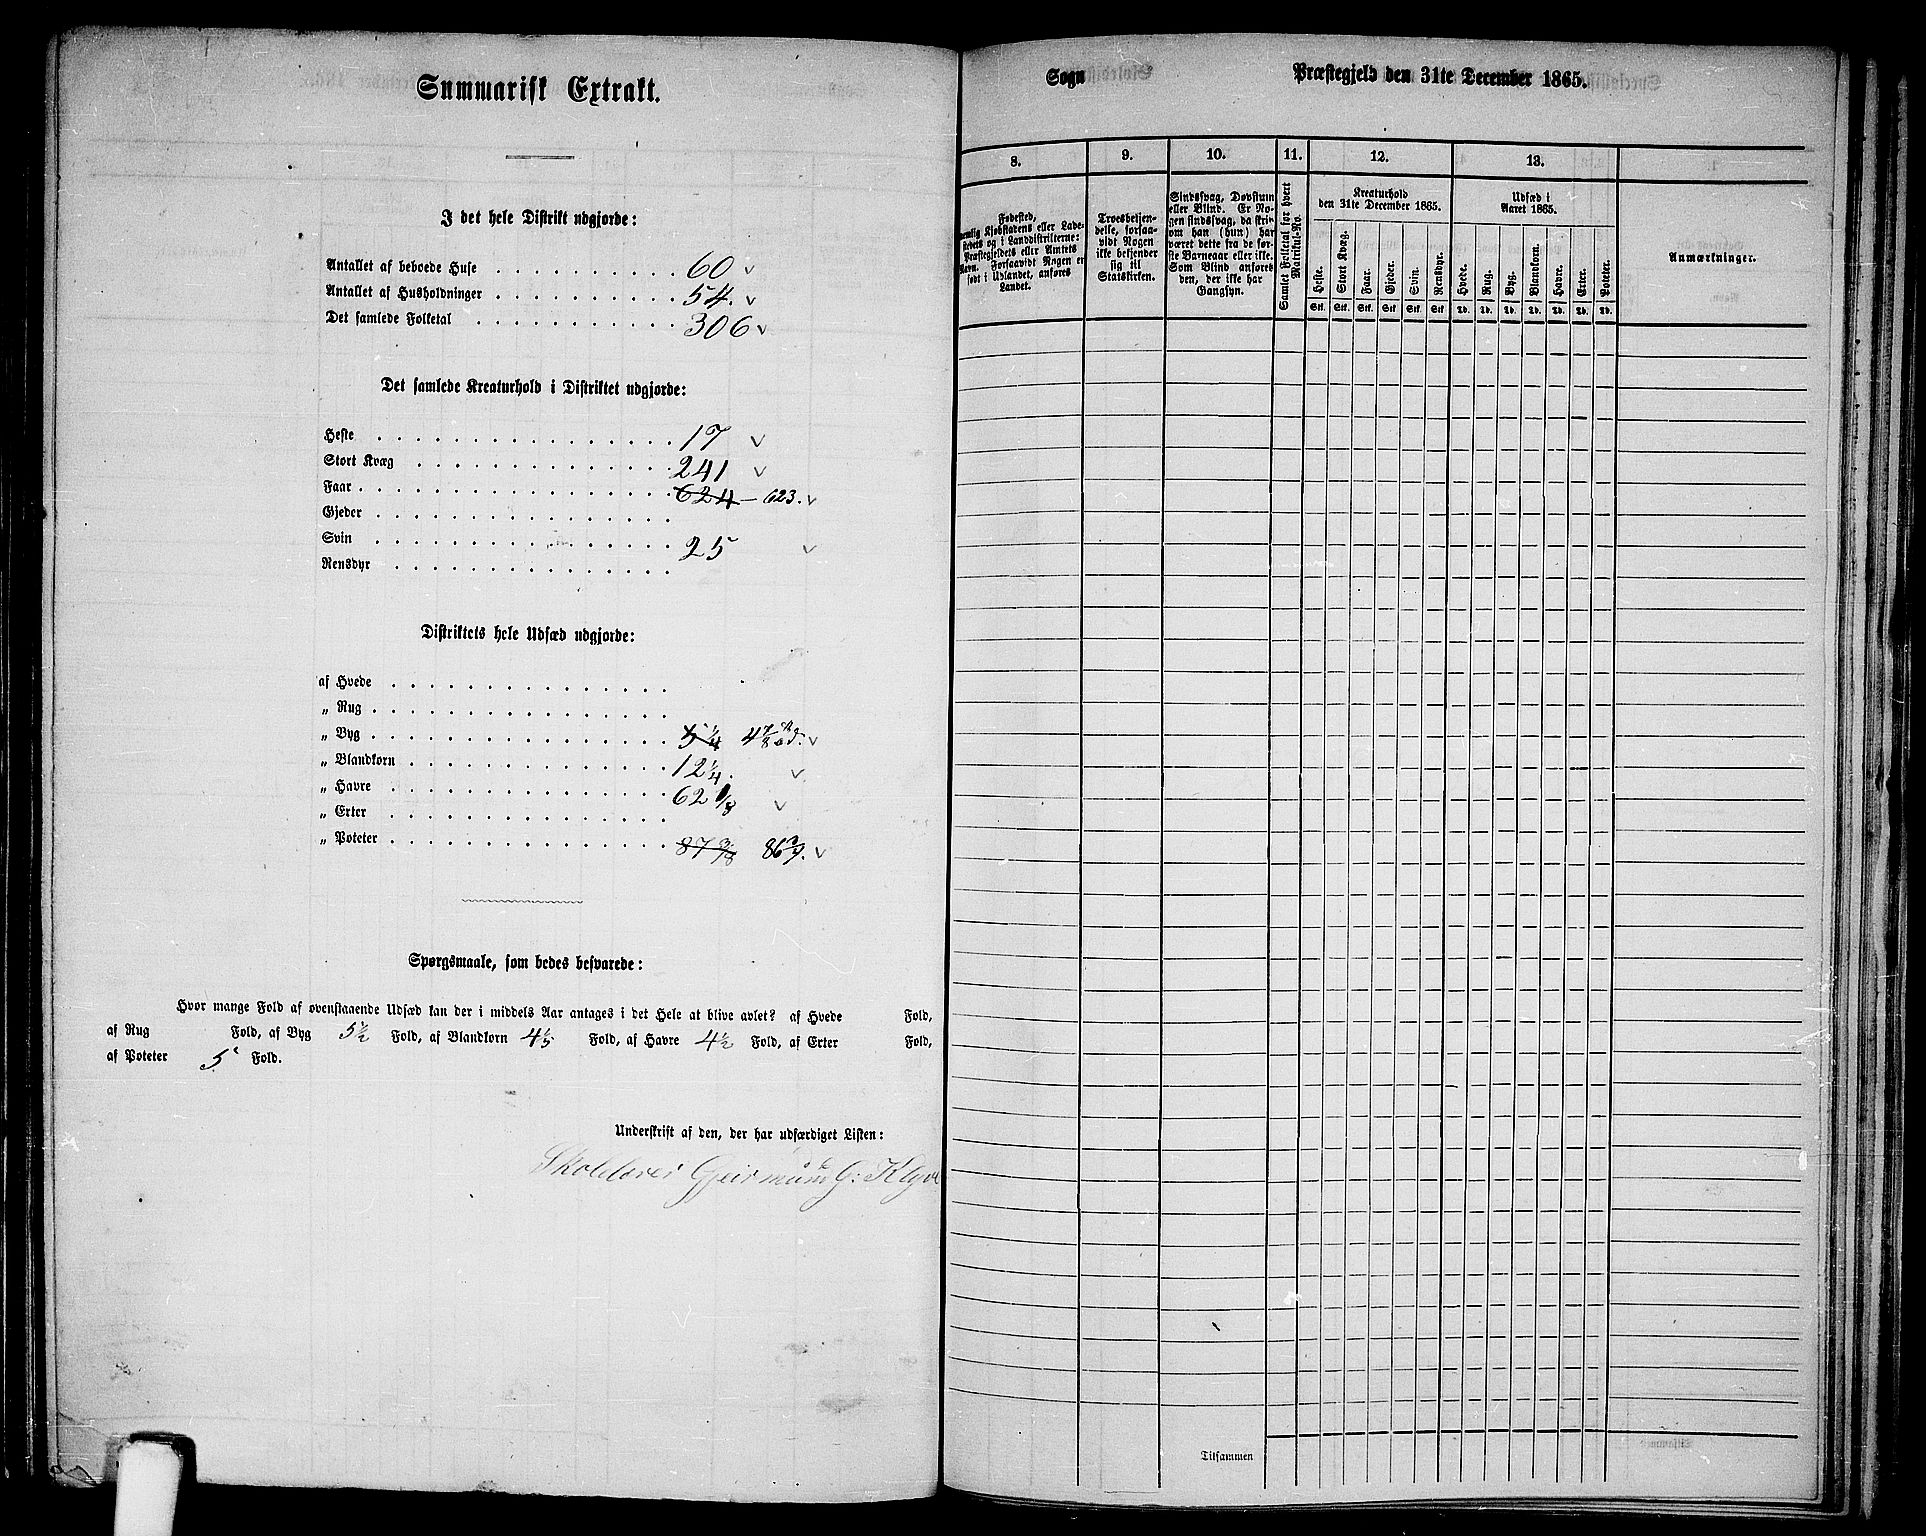 Summarisk Extrakt.
I det hele Distrikt udgjorde:
Antallet af beboede Huse . . . . . . . . . . 60 v
Antallet af Husholdninger . . . . . . . . . . 54. v
Det samlede Folketal . . . . . . . . . . . 306 v
Det samlede Kreaturhold i Distriktet udgjorde:
Heste . . . . . . . . . . . . . . . . 17 v
Stort Kvæg . . . . . . . . . . . . . . 241 v
Faar . . . . . . . . . . . . . . . . . 624 — 623. v
Gjeder . . . . . . . . . . . . . . . .
Svin . . . . . . . . . . . . . . . . 25 v
Rensdyr . . . . . . . . . . . . . . .
Distriktets hele Udsæd udgjorde:
af Hvede . . . . . . . . . . . . . . .
„ Rug . . . . . . . . . . . . . . . .
„ Byg . . . . . . . . . . . . . . . . 5 1/4 4 7/8 v
„ Blandkorn . . . . . . . . . . . . . . 12 1/4. v
„ Havre . . . . . . . . . . . . . . . 62 1/8 v
„ Erter . . . . . . . . . . . . . . .
„ Poteter . . . . . . . . . . . . . . . 87 3/8 v
Spørgsmaale, som bedes besvarede:
Hvor mange Fold af ovenstaaende Udsæd kan der i middels Aar antages i det Hele at blive avlet? af Hvede Fold,
af Rug Fold, af Byg 5 1/2 Fold, af Blandkorn Fold, af Havre 4 1/2 Fold, af Erter Fold,
af Poteter 5 Fold.
Underskrift af den, der har udfærdiget Listen:
Skolelærer Gjeirmum G. Klyve
Sogn Præstegjeld den 31te December 1865.
8. 9. 10. 11. 12. 13.
Fødested,
nemlig Kjøbstadens eller Ladestedets og i Landdistrikterne: Præstegjeldets eller Amtets Navn. Forsaavidt Nogen er født i Udlandet, anføres Landet.
Troesbekjendelse, forsaavidt Nogen ikke bekjender sig til Statskirken.
Sindssvag, Døvstum eller Blind. Er Nogen sindssvag, da skriv om han (hun) har været dette fra de første Barneaar eller ikke. Som Blind anføres den, der ikke har Gangsyn.
Samlet Folketal for hvert Matrikul-No.
Kreaturhold
den 31te December 1865.
Heste. Stort Kvæg. Faar. Gjeder. Svin. Rensdyr.
Stk. Stk. Stk. Stk. Stk. Stk
Udsæd i
Aaret 1865.
Hvede. Rug. Byg. Blandkorn. Havre. Erter. Poteter.
Td. Td. Td. Td. Td. Td. Td.
Anmærkninger.
Tilsammen